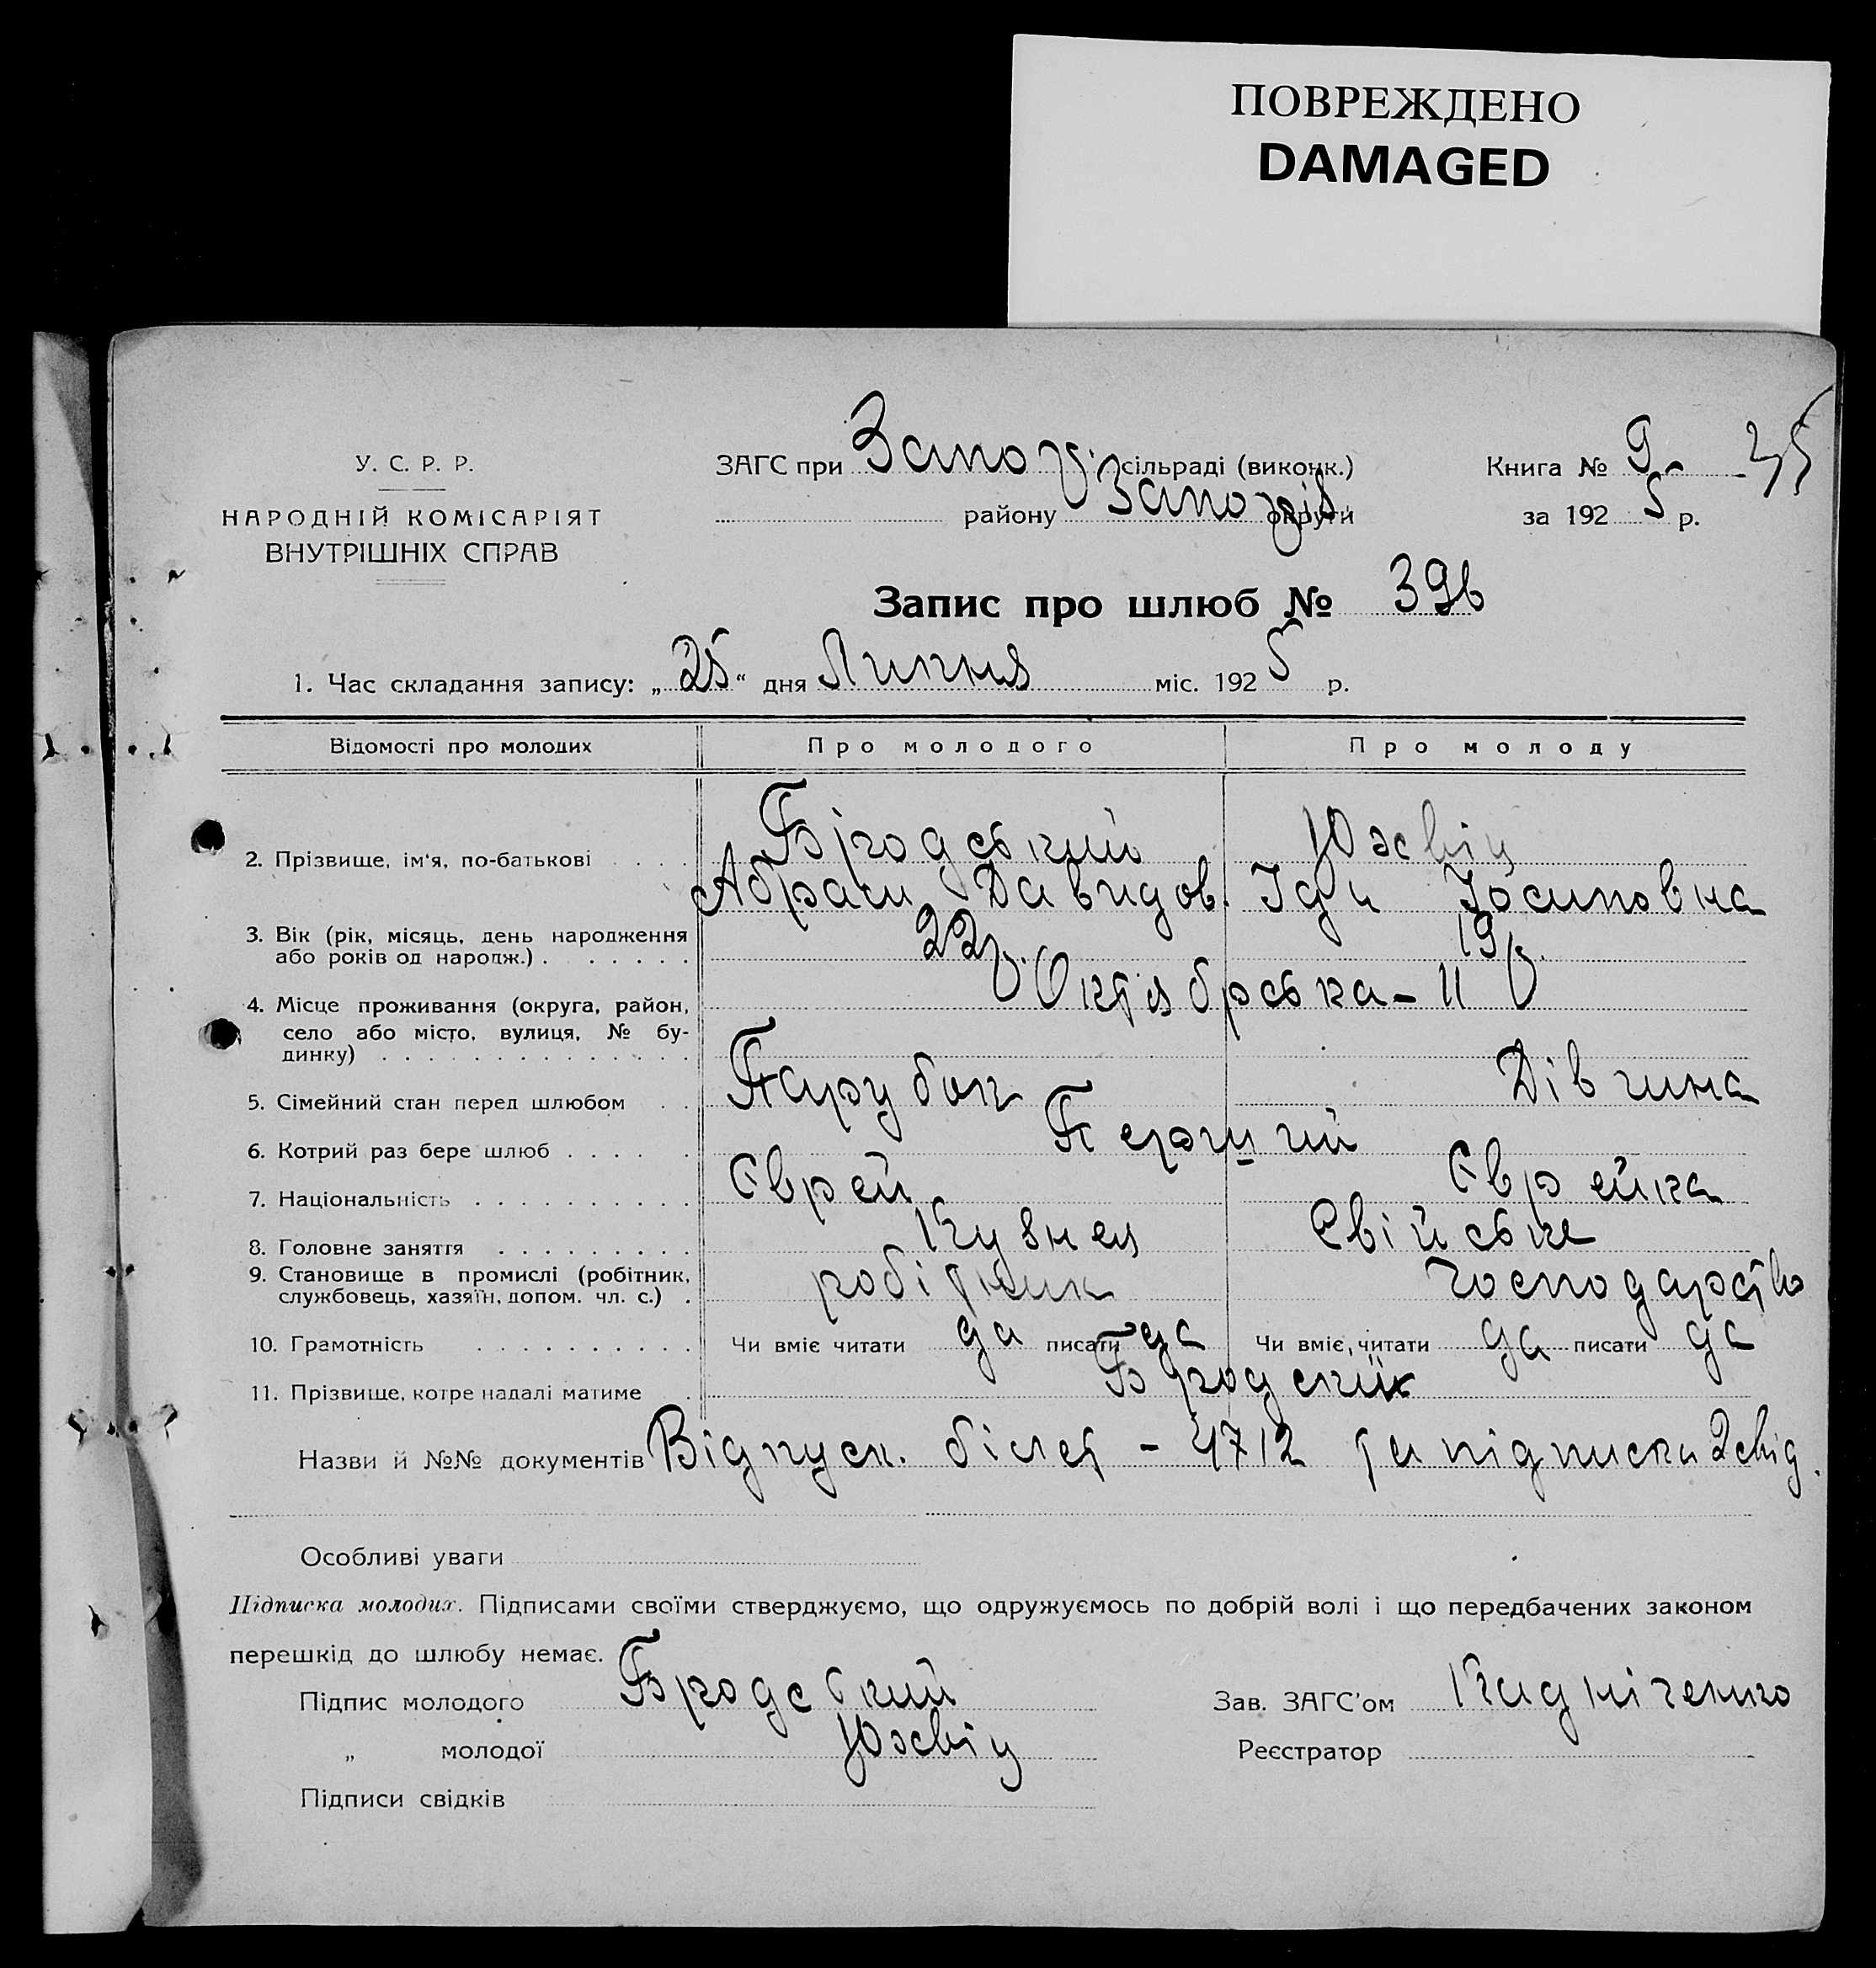 ПОВРЕЖДЕНО
DAMAGED
У. С. Р. Р.
НАРОДНІЙ КОМІСАРІЯТ
ВНУТРІШНІХ СПРАВ
ЗАГС при Запор. сільраді (виконк.)
району Запоріз. округи
Книга № 9 35
за 1925 р.
Запис про шлюб № 396
1. Час складання запису: „25“ дня Липня міс. 1925 р.
Відомості про молодих Про молодого Про молоду
2. Прізвище, ім'я, по-батькові Бродський Юзвіц
Абрам Давидов. Іда Йосиповна
3. Вік (рік, місяць, день народження 22р. 19р.
або років од народж.)
4. Місце проживання (округа, район, Октябрська - 11
село або місто, вулиця, № бу-
динку)
5. Сімейний стан перед шлюбом Парубок Дівчина
6. Котрий раз бере шлюб Перший
7. Національність Єврей Єврейка
8. Головне заняття Кузнец Свійське
9. Становище в промислі (робітник, робітник господарство
службовець, хазяїн, допом. чл. с.)
10. Грамотність Чи вміє читати да писати да Чи вміє читати да писати да
11. Прізвище, котре надалі матиме Бродский
Назви й №№ документів Відпуск. білет - 4712 та підписка 2 свід.
Особливі уваги
Підписка молодих. Підписами своїми стверджуємо, що одружуємось по добрій волі і що передбачених законом
перешкід до шлюбу немає.
Підпис молодого Бродський Зав. ЗАГС'ом
„ молодої Юзвіц Реєстратор
Підписи свідків